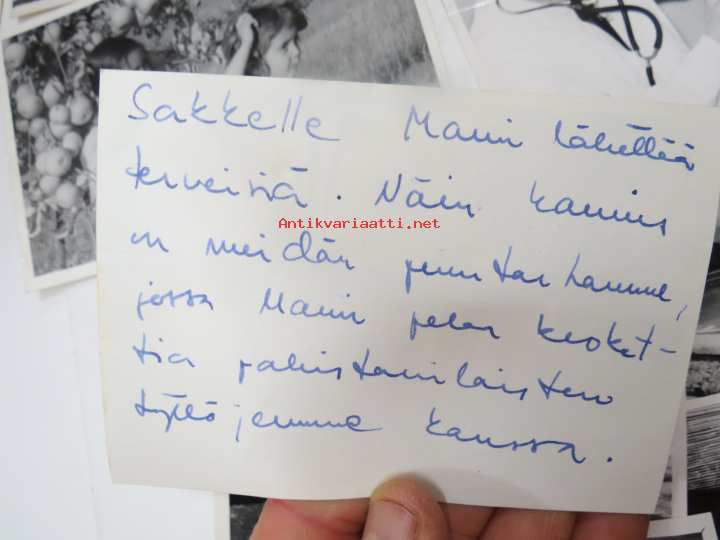 Sakkelle Mami lähettää
terveisiä. Näin kaunis
on meidän puutarhamme,
jossa Mami pelaa kroket-
tia pakistanilaisten
tyttöjemme kanssa.
Antikvariaatti.net